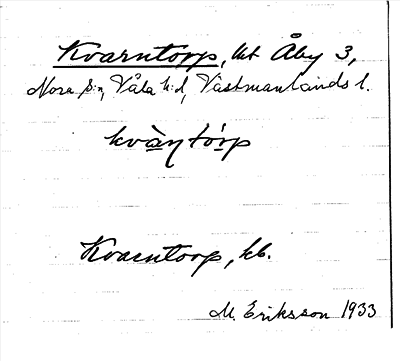 Kvarntorp, ht Åby 3,
Nora s:n, Våla h:d, Västmanlands l.
kvàṇtórp
Kvarntorp, kb.
M. Eriksson 1933